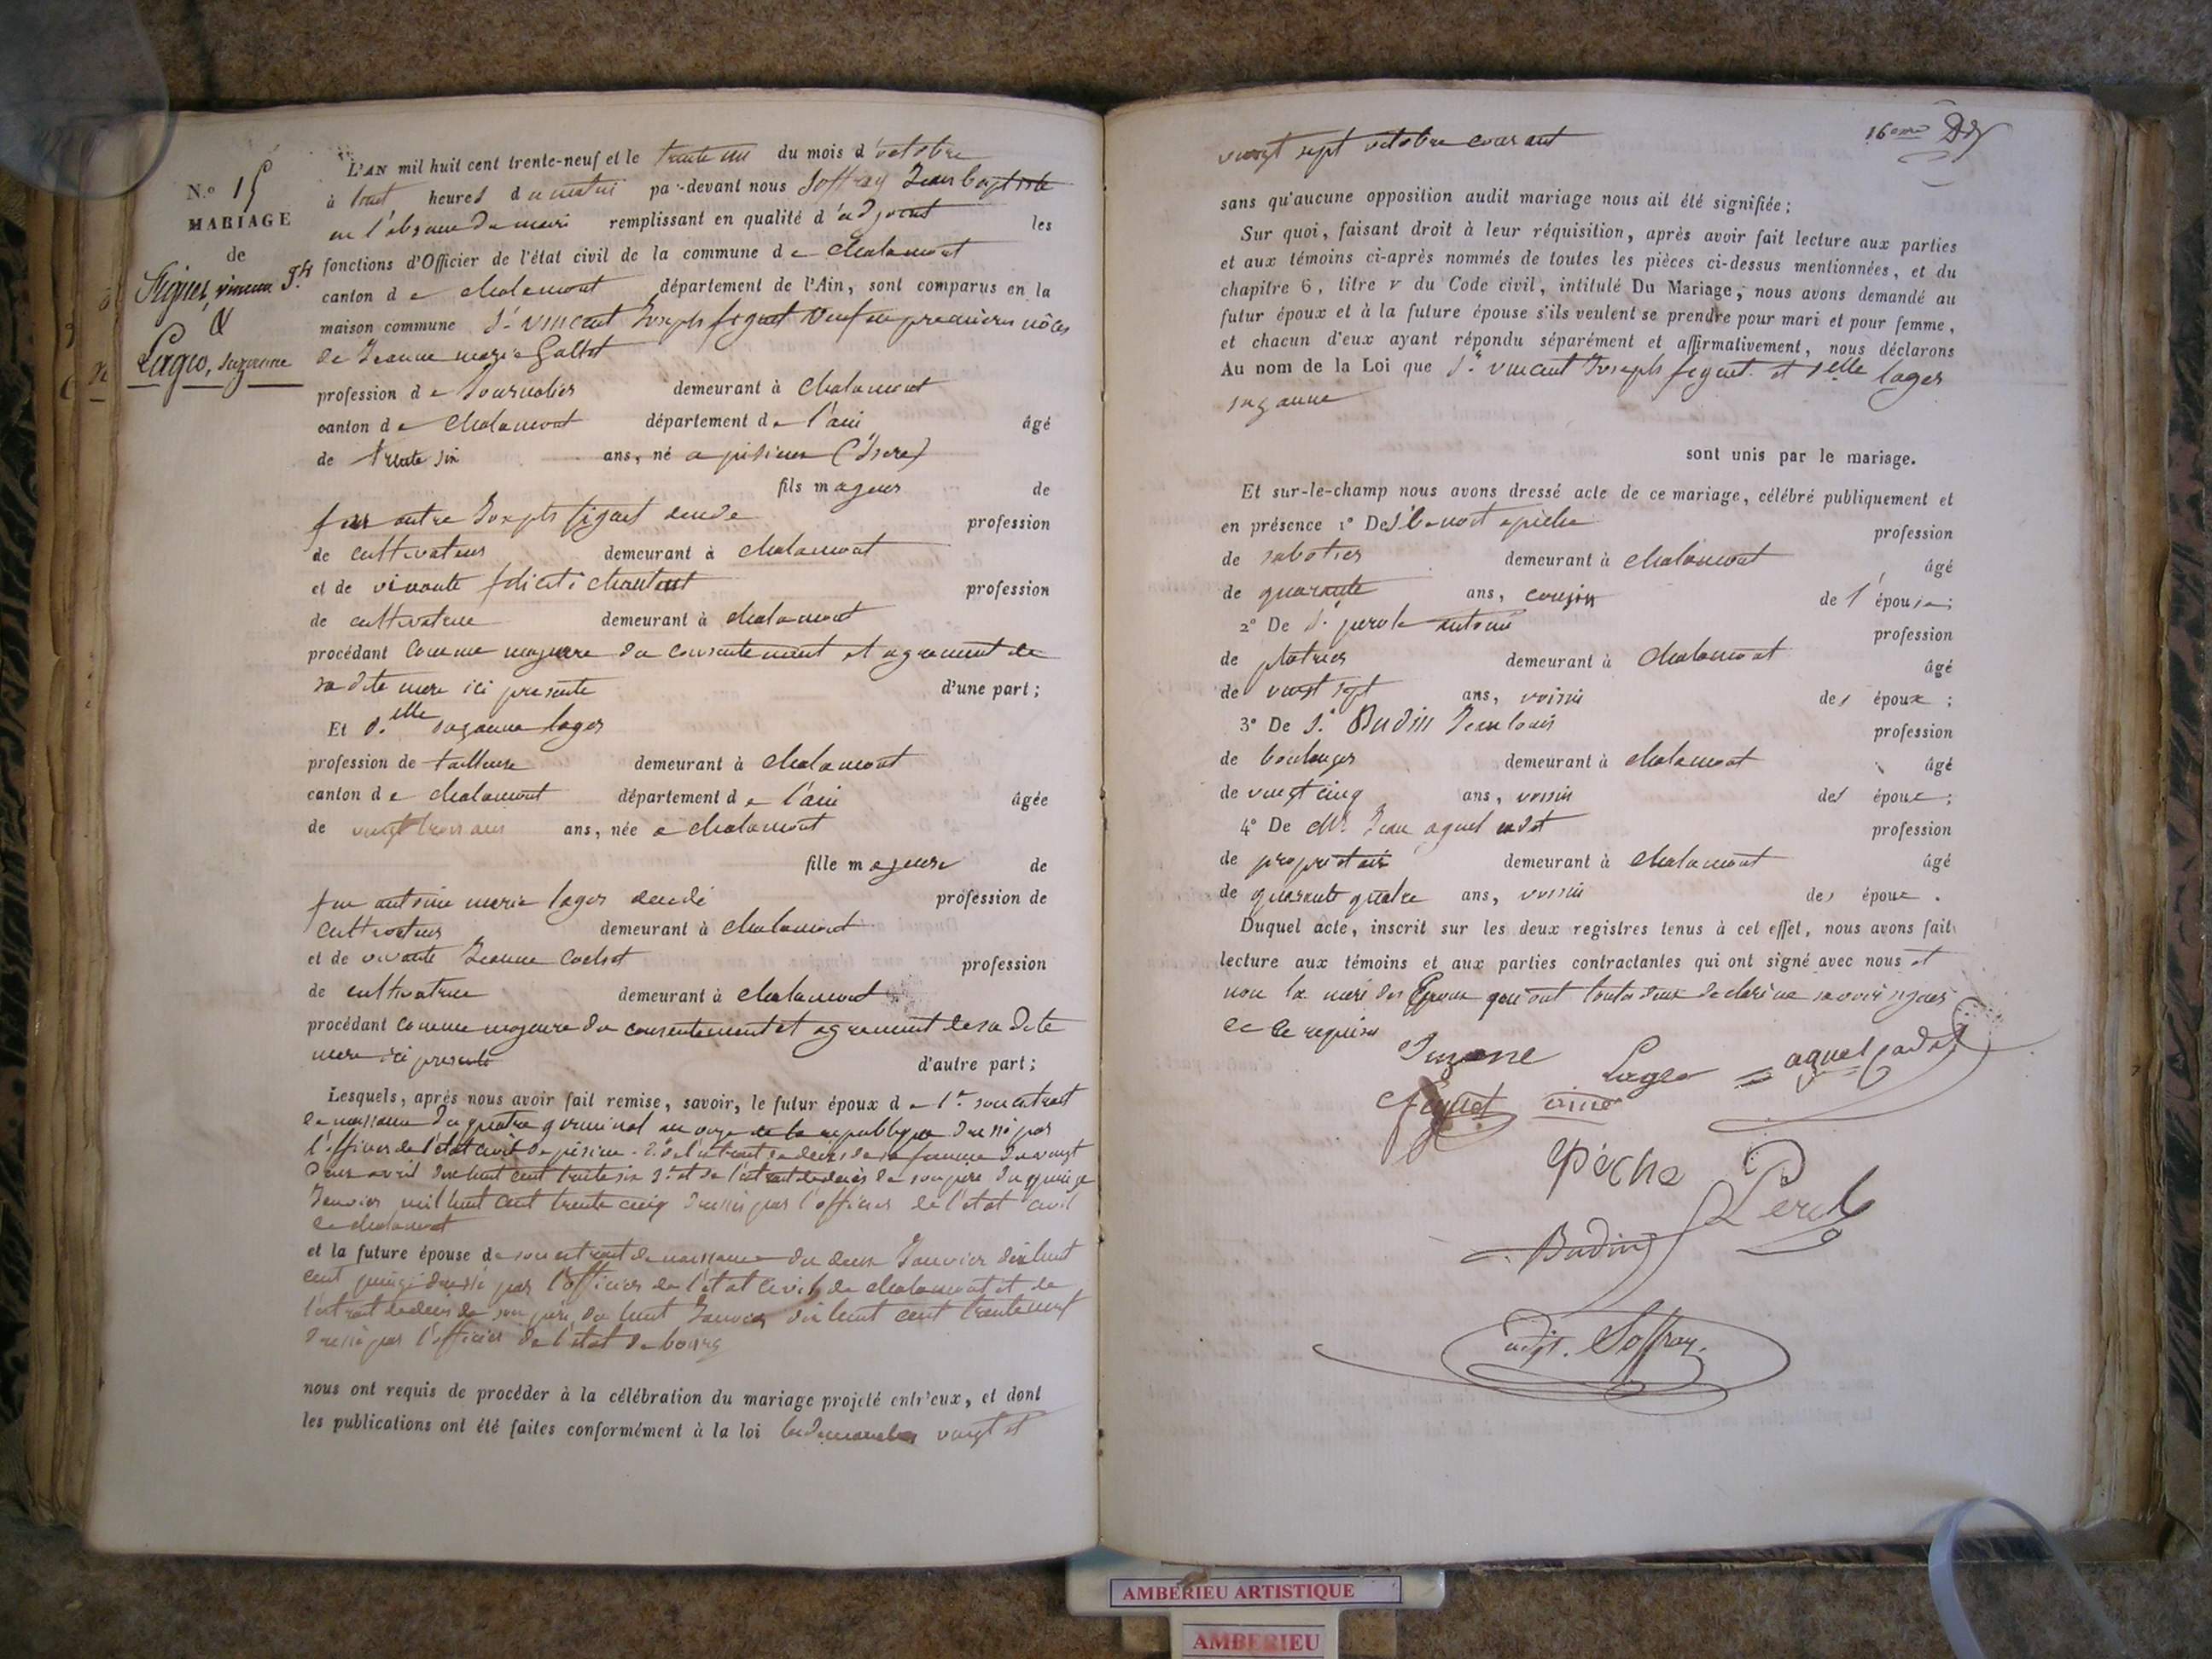 N.o 15
MARIAGE
de
Figuet, vincent Jh
&
Lager, Suzanne
L'AN mil huit cent trente-neuf et le trente un du mois d'octobre
à huit heures du matin par-devant nous Joffray Jean baptiste
en l'absence du maire remplissant en qualité d'adjoint les
fonctions d'Officier de l'état civil de la commune de chalamont
canton de chalamont département de l'Ain, sont comparus en la
maison commune Sr vincent Joseph figuet veuf en premieres nôces
de Jeanne marie Gallet
profession de Journalier demeurant à chalamont
canton de chalamont département de l'ain âgé
de trente six ans, né a pisieu (Isere)
fils majeur de
feu autre Joseph figuet decede profession
de cultivateur demeurant à chalamont
et de vivante felicité profession
de cultivatrice demeurant à chalamont
procédant comme majeure du consentement et agrement de
sa dite mere ici presente d'une part;
Et d.elle suzanne lager
profession de tailleuse demeurant à chalamont
canton de chalamont département de l'ain âgée
de vingt trois ans ans, née a chalamont
fille majeure de
feu antoine marie lager decedé profession de
cultivateur demeurant à chalamont
et de vivante Jeanne Cochet profession
de cultivatrice demeurant à chalamont
procédant comme majeure du consentement et agrement de sa dite
mere ici presente d'autre part;
Lesquels, après nous avoir fait remise, savoir, le futur époux de 1° son extrait
de naissance du quatre germinal an onze de la republique dressé par
l'officier de l'état civil de pisieu 2° de l'extrait de deces de sa femme du vingt
deux avril dix huit cent trente six 3° et de l'extrait de decès de son père du quinze
Janvier mil huit cent trente cinq dressés par l'officier de l'état civil
de chalamont
et la future épouse de son extrait de naissance du deux Janvier dix huit
cent quinze dressé par l'officier de l'état civil de chalamont et de
l'extrait de deces de son père du huit Janvier dix huit cent trente neuf
dressé par l'officier de l'état de bourg
nous ont requis de procéder à la célébration du mariage projeté entr'eux, et dont
les publications ont été faites conformément à la loi les dimanches vingt et
16eme
vingt sept octobre courant
sans qu'aucune opposition audit mariage nous ait été signifiée;
Sur quoi, faisant droit à leur réquisition, après avoir fait lecture aux parties
et aux témoins ci-après nommés de toutes les pièces ci-dessus mentionnées, et du
chapitre 6, titre v du Code civil, intitulé Du Mariage; nous avons demandé au
futur époux et à la future épouse s'ils veulent se prendre pour mari et pour femme,
et chacun d'eux ayant répondu séparément et affirmativement, nous déclarons
Au nom de la Loi que Sr vincent Joseph figuet et delle lager
suzanne
sont unis par le mariage.
Et sur-le-champ nous avons dressé acte de ce mariage, célébré publiquement et
en présence 1° De Sr benoit epiche profession
de sabotier demeurant à chalamont âgé
de quarante ans, cousin de l'épouse;
2° De Sr antoine profession
de platrier demeurant à chalamont âgé
de vingt sept ans, voisin des époux;
3° De Sr Budin Jean louis profession
de boulanger demeurant à chalamont âgé
de vingt cinq ans, voisin des époux;
4° De Mr Jean aguel cadet profession
de propriétaire demeurant à chalamont âgé
de quarante quatre ans, voisin des époux.
Duquel acte, inscrit sur les deux registres tenus à cet effet, nous avons fait
lecture aux témoins et aux parties contractantes qui ont signé avec nous et
non la mere des Epoux qui ont toutes deux declaré ne savoir signer
de ce requises
Suzanne Lager aguel cadet
figuet
epiche
Budin
adjt. Joffray
AMBERIEU ARTISTIQUE
AMBERIEU